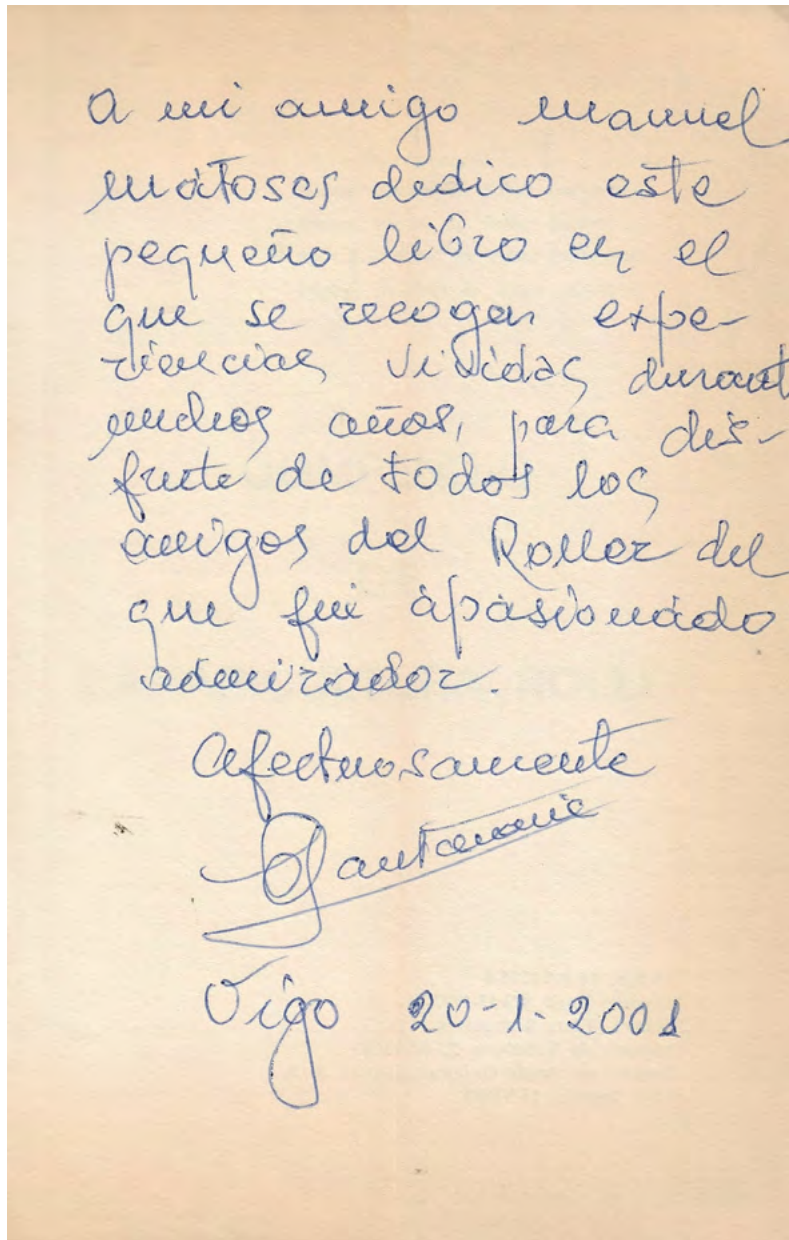 A mi amigo Manuel
Matoses dedico este
pequeño libro en el
que se recogen expe-
riencias vividas durant
muchos años, para dis-
frute de todos los
amigos del Roller del
que fui apasionado
admirador.
Afectuosamente
Vigo 20-1-2001